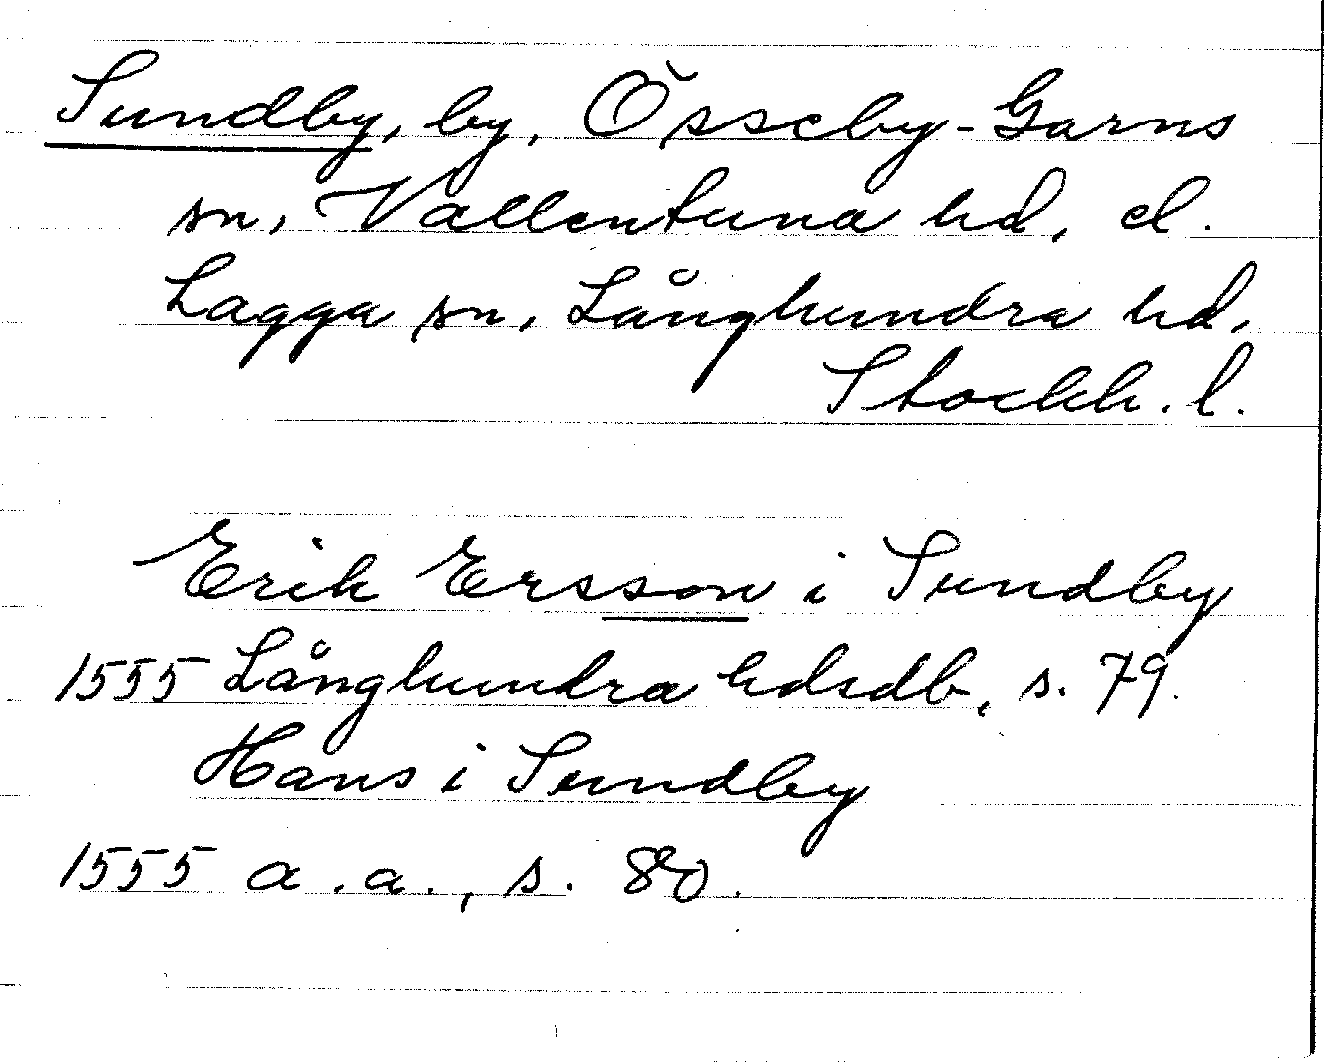 Sundby, by, Össeby-Garns
sn, Vallentuna hd, el.
Lagga sn, Långhundra hd,
Stockh. l.
Erik Ersson i Sundby
1555 Långhundra hdsdb, s. 79.
Hans i Sundby
1555 a.a., s. 80.